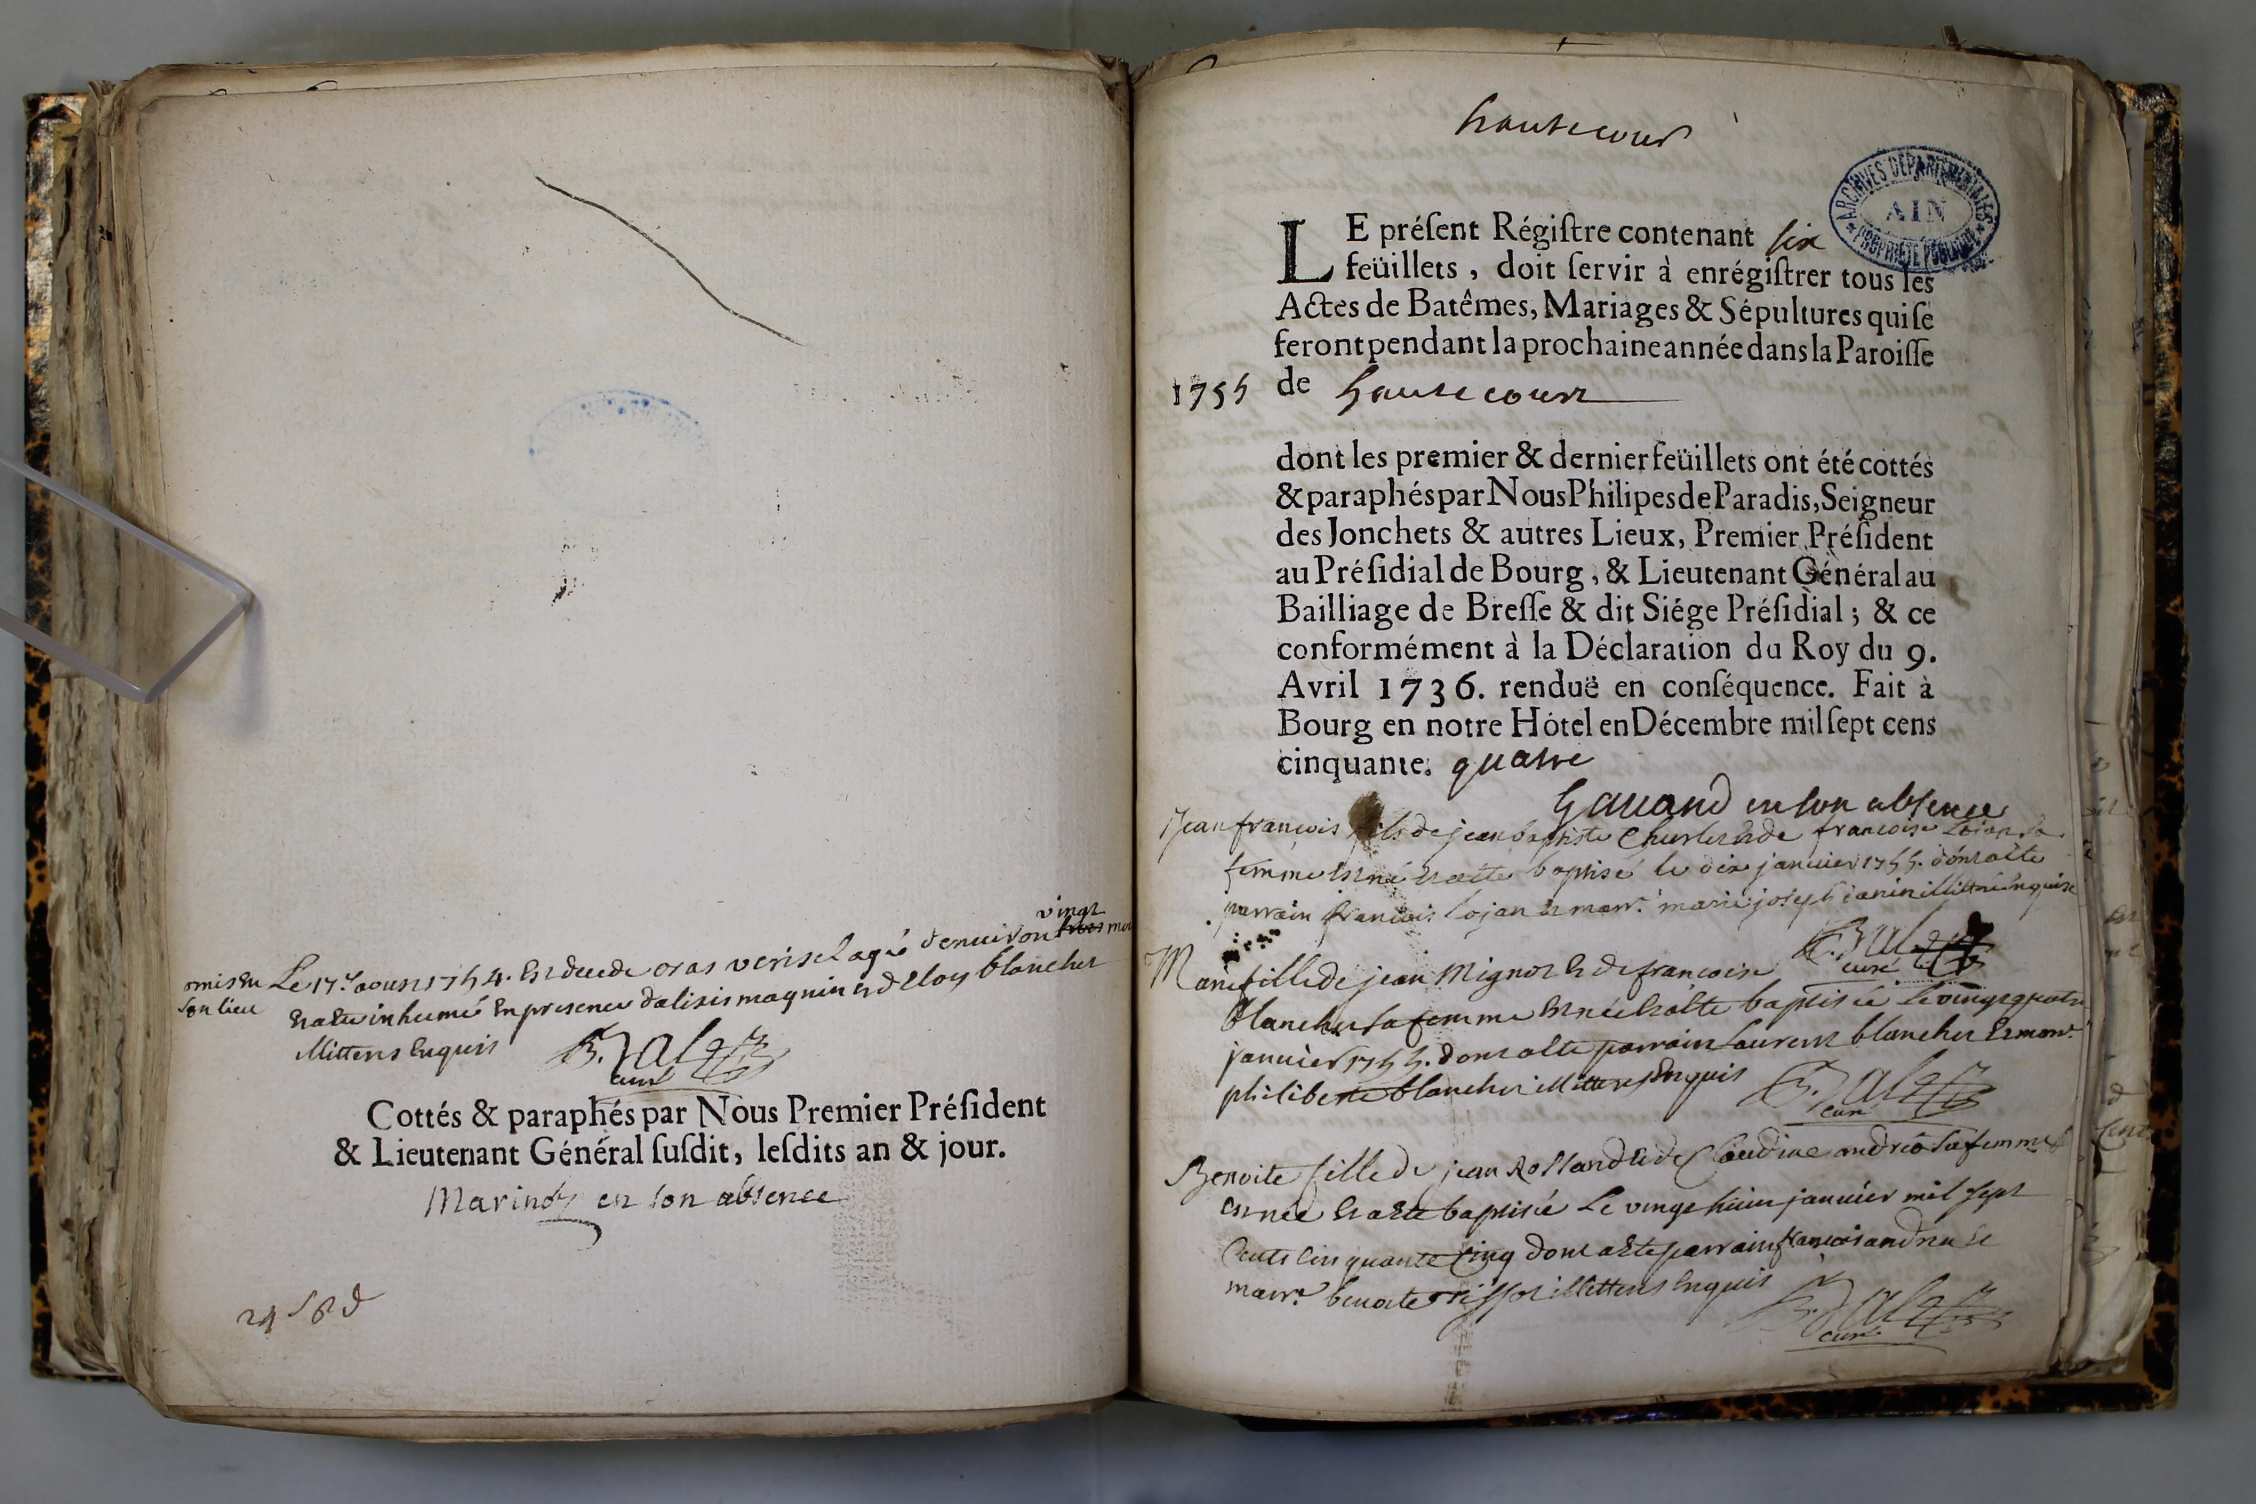 vingt
omis en Le 17e aoust 1754. Est decede oras verisel agé denviron trois mois
son lieu Et a été inhumé En presence dalixis magnin et d Eloy blanchet
illittérés Enquis
curé
Cottés & paraphés par Nous Premier Préſident
& Lieutenant Général ſuſdit, leſdits an & jour.
en son absence
hautecour
ARCHIVES DÉPARTEMENTALES
AIN
PROPRIÉTÉ PUBLIQUE
LE préſent Régiſtre contenant six
feüillets, doit ſervir à enrégiſtrer tous les
Actes de Batêmes, Mariages & Sépultures qui ſe
feront pendant la prochaine année dans la Paroiſſe
1755 de hautecourt
dont les premier & dernier feüillets ont été cottés
& paraphés par Nous Philipes de Paradis, Seigneur
des Jonchets & autres Lieux, Premier Préſident
au Préſidial de Bourg, & Lieutenant Général au
Bailliage de Breſſe & dit Siége Préſidial ; & ce
conformément à la Déclaration du Roy du 9.
Avril 1736. renduë en conſéquence. Fait à
Bourg en notre Hôtel en Décembre mil ſept cens
cinquante. quatre
en son absence
Jean françois fils de jean baptiste Charles Et de francoise Lojan sa
femme Est né Et a été baptisé le dix janvier 1755. dont a été
parrain francois Lojan et marr.e marie joseph janin illittérés Enquis
curé
Marie fille de jean Mignot Et de francoise
blanchet sa femme Est née Et a été baptisée Le vingt quatre
janvier 1755. dont a été parrain Laurent blanchet Et marr.e
philiberte blanchet illitterés Enquis
curé
Benoite fille de jean Rolland Et de Claudine andréa sa femme
Est née Et a été baptisée Le vingt huit janvier mil sept
Cents Cinquante Cinq dont a été parrain françois andréa Et
marr.e benoite illitterés Enquis
curé